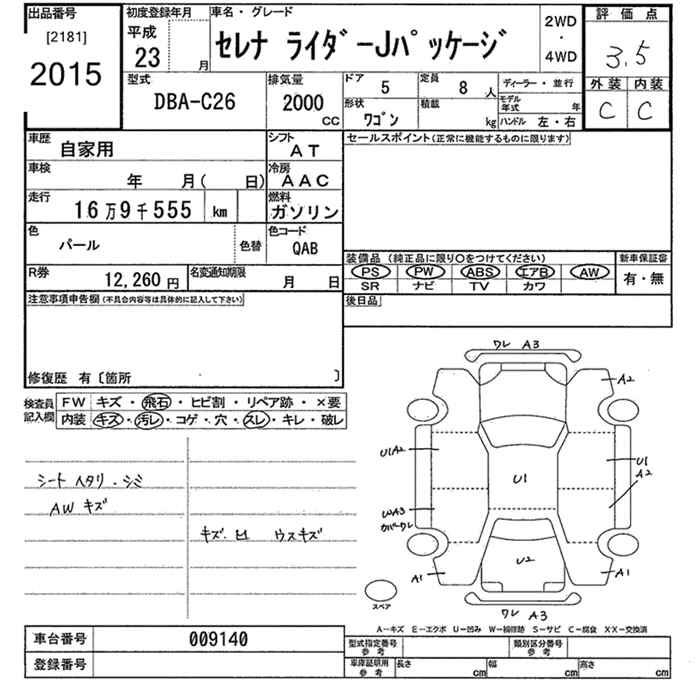 出品番号
[2181]
2015
初度登録年月
平成
23 月
車名・グレード
セレナ ライダーJパッケージ
2WD
・
4WD
評価点
3.5
外装 内装
C C
型式
DBA-C26
排気量
2000
CC
ドア
5
定員
8 人
形状
ワゴン
積載
kg
ディーラー・並行
モデル年式 年
ハンドル 左・右
車歴
自家用
シフト
AT
車検
年 月( 日)
冷房
AAC
走行
16万9千555 km
燃料
ガソリン
色
パール
色替
色コード
QAB
R券
12,260円
名変通知期限
月 日
セールスポイント(正常に機能するものに限ります)
装備品(純正品に限り○をつけてください)
PS PW ABS エアB AW
SR ナビ TV カワ
新車保証書
有・無
後日品
注意事項申告欄(不具合内容等は具体的に記入して下さい)
修復歴 有〔箇所 〕
検査員記入欄
FW キズ・飛石・ヒビ割・リペア跡・×要
内装 キズ・汚レ・コゲ・穴・スレ・キレ・破レ
シート ヘタリ・シミ
AW キズ
キズ・凹 ウスキズ
ワレ A3
A2
U1A2
U1
U1
A2
WA3
カバーワレ
U2
A1
A1
ワレ A3
スペア
A−キズ E−エクボ U−凹み W−補修跡 S−サビ C−腐食 XX−交換済
車台番号
009140
登録番号
型式指定番号
参考
類別区分番号
参考
車庫証明用
参考
長さ cm
幅 cm
高さ cm